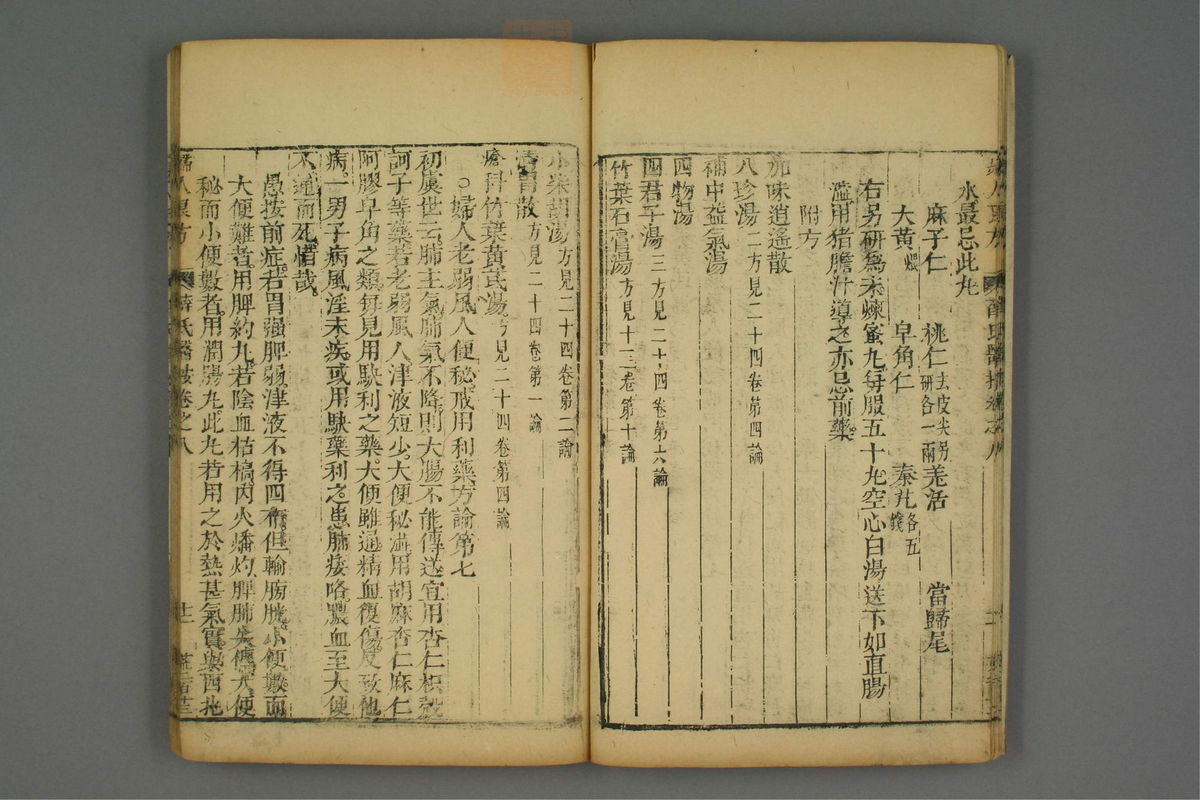 水最忌此丸
麻子仁 桃仁去皮尖另研各一兩 羌活 當歸尾
大黃煨 皁角仁 秦艽各五錢
右另研為末煉蜜丸每服五十丸空心白湯送下如直腸
濫用猪膽汁導之亦忌前藥
附方
加味逍遙散
八珍湯二方見二十四卷第四論
補中益氣湯
四物湯
四君子湯三方見二十四卷第六論
竹葉石膏湯方見十三卷第十論
小柴胡湯方見二十四卷第二論
清胃散方見二十四卷第一論
瘡科竹葉黃芪湯方見二十四卷第四論
○婦人老弱風人便秘戒用利藥方論第七
初虞世云肺主氣肺氣不降則大腸不能傳送宜用杏仁枳殼
訶子等藥若老弱風人津液短少大便秘澁用胡麻杏仁麻仁
阿膠皁角之類每見用駃利之藥大便雖通精血復傷反致他
病一男子病風淫末疾或用駃藥利之患肺痿咯膿血至大便
不通而死惜哉
愚按前症若胃强脾弱津液不得四布但輸膀胱小便數而
大便難者用脾約丸若陰血枯槁內火燔灼脾肺失傳大便
秘而小便數者用潤腸丸此丸若用之於熱甚氣實與西北
婦人良方 薛氏醫按卷之八 十二